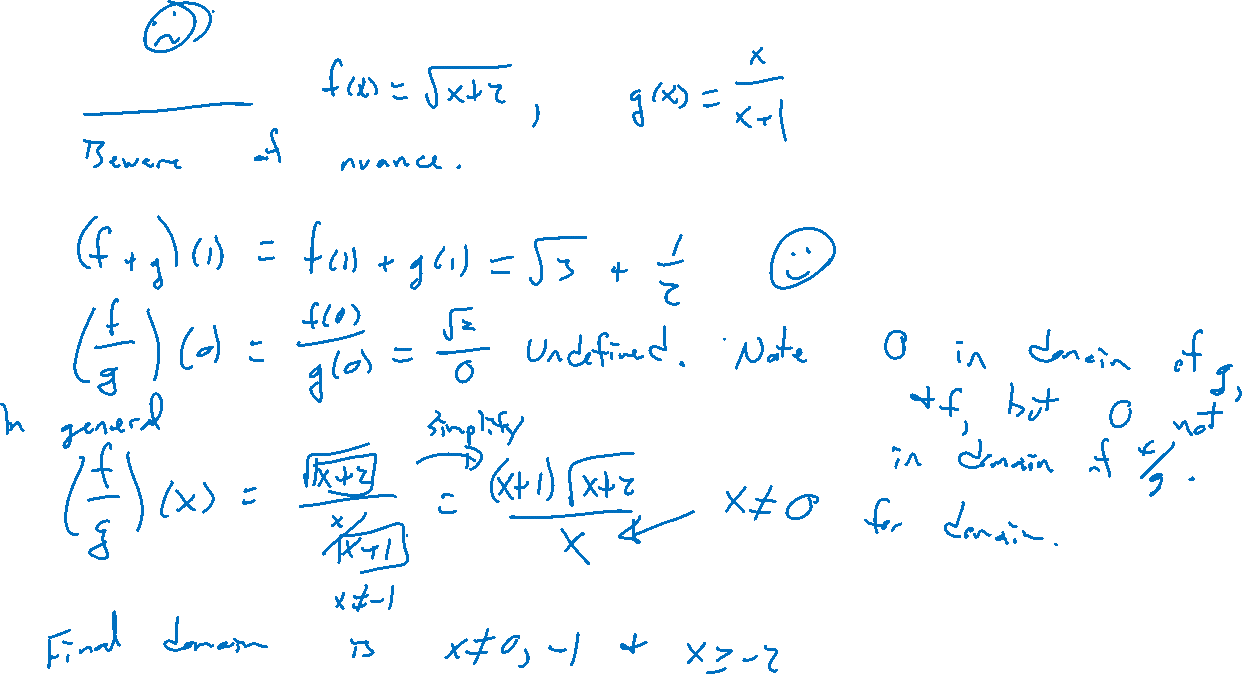 f(x) = √x+2 , g(x) = x/x+1
Beware of nuance.
(f+g)(1) = f(1) + g(1) = √3 + 1/2
(f/g)(0) = f(0)/g(0) = √2/0 Undefined. Note 0 in domain of g,
+ f, but 0 not
in domain of f/g.
In general
simplify
(f/g)(x) = √x+2/(x/x+1) = (x+1)√x+2/x x≠0 for domain.
x≠-1
Final domain is x≠0, -1 + x≥-2